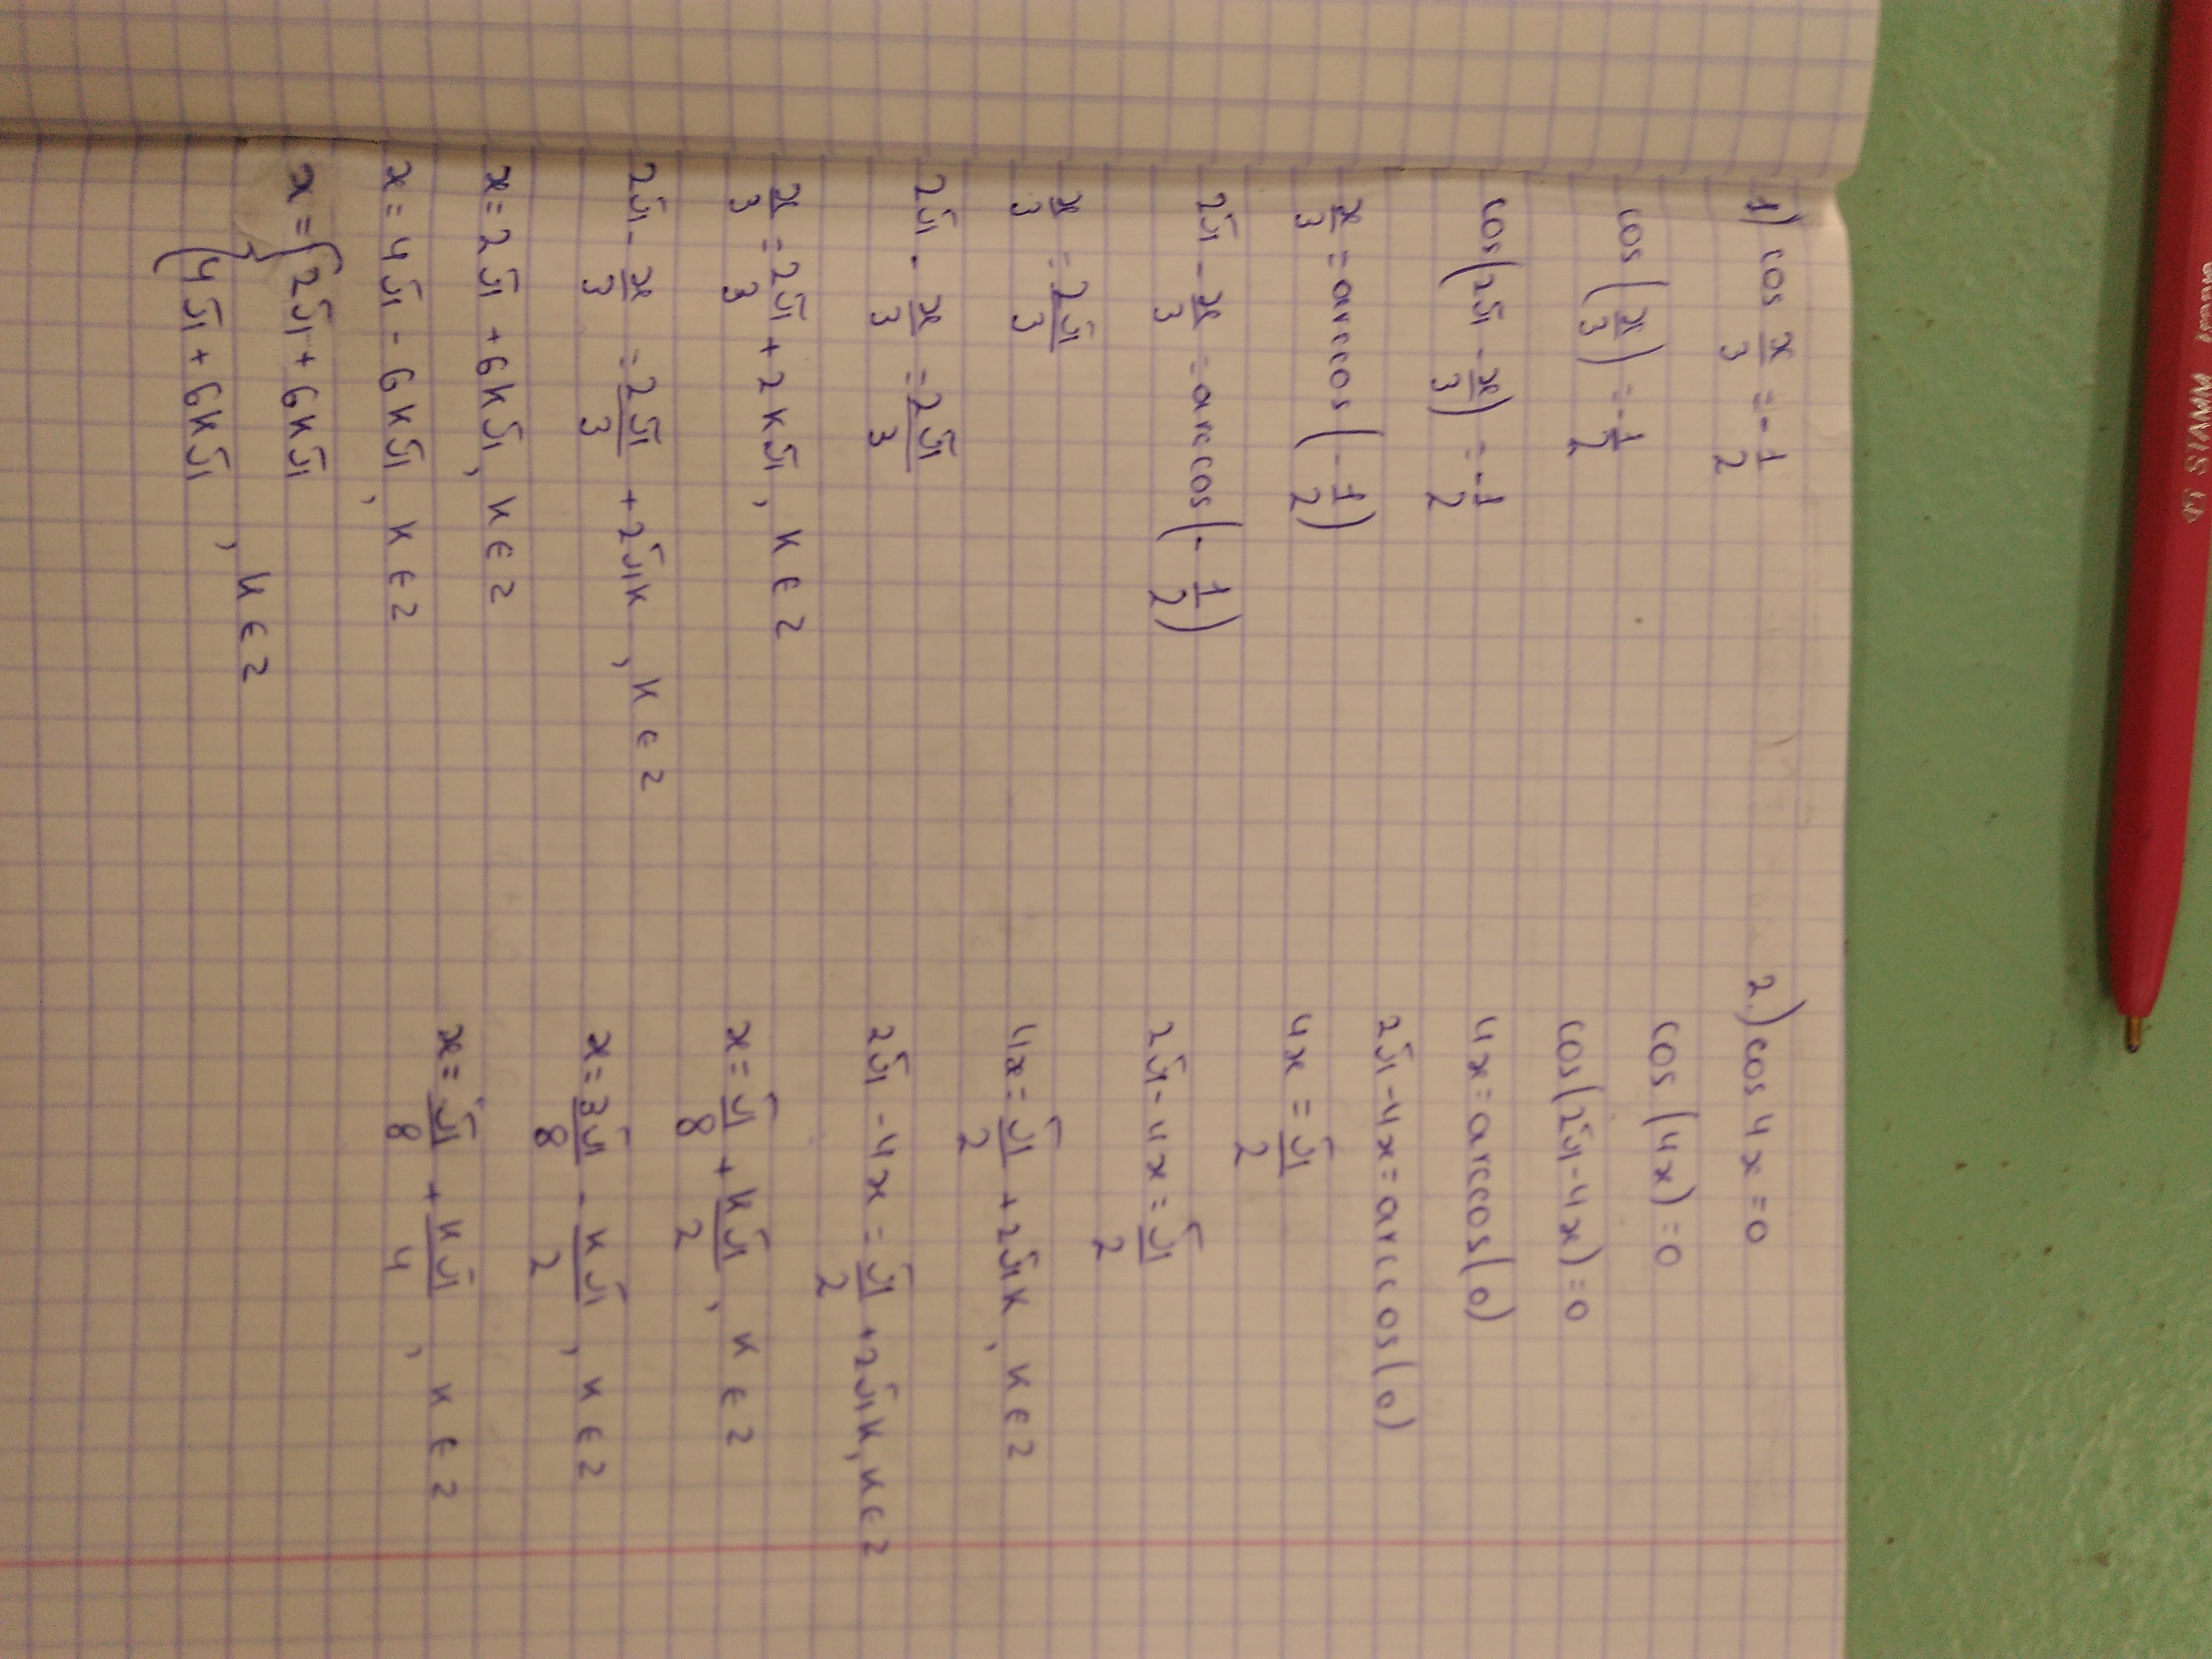 1) cos x/3 = -1/2
cos(x/3) = -1/2
cos(2π - x/3) = -1/2
x/3 = arccos(-1/2)
2π - x/3 = arccos(-1/2)
x/3 = 2π/3
2π - x/3 = 2π/3
x/3 = 2π/3 + 2кπ, к ∈ z
2π - x/3 = 2π/3 + 2πк, к ∈ z
x = 2π + 6кπ, к ∈ z
x = 4π - 6кπ, к ∈ z
x = { 2π + 6кπ
{ 4π + 6кπ, к ∈ z
2.) cos 4x = 0
cos (4x) = 0
cos(2π - 4x) = 0
4x = arccos(0)
2π - 4x = arccos(0)
4x = π/2
2π - 4x = π/2
4x = π/2 + 2πк, к ∈ z
2π - 4x = π/2 + 2πк, к ∈ z
x = π/8 + кπ/2, к ∈ z
x = 3π/8 - кπ/2, к ∈ z
x = π/8 + кπ/4, к ∈ z